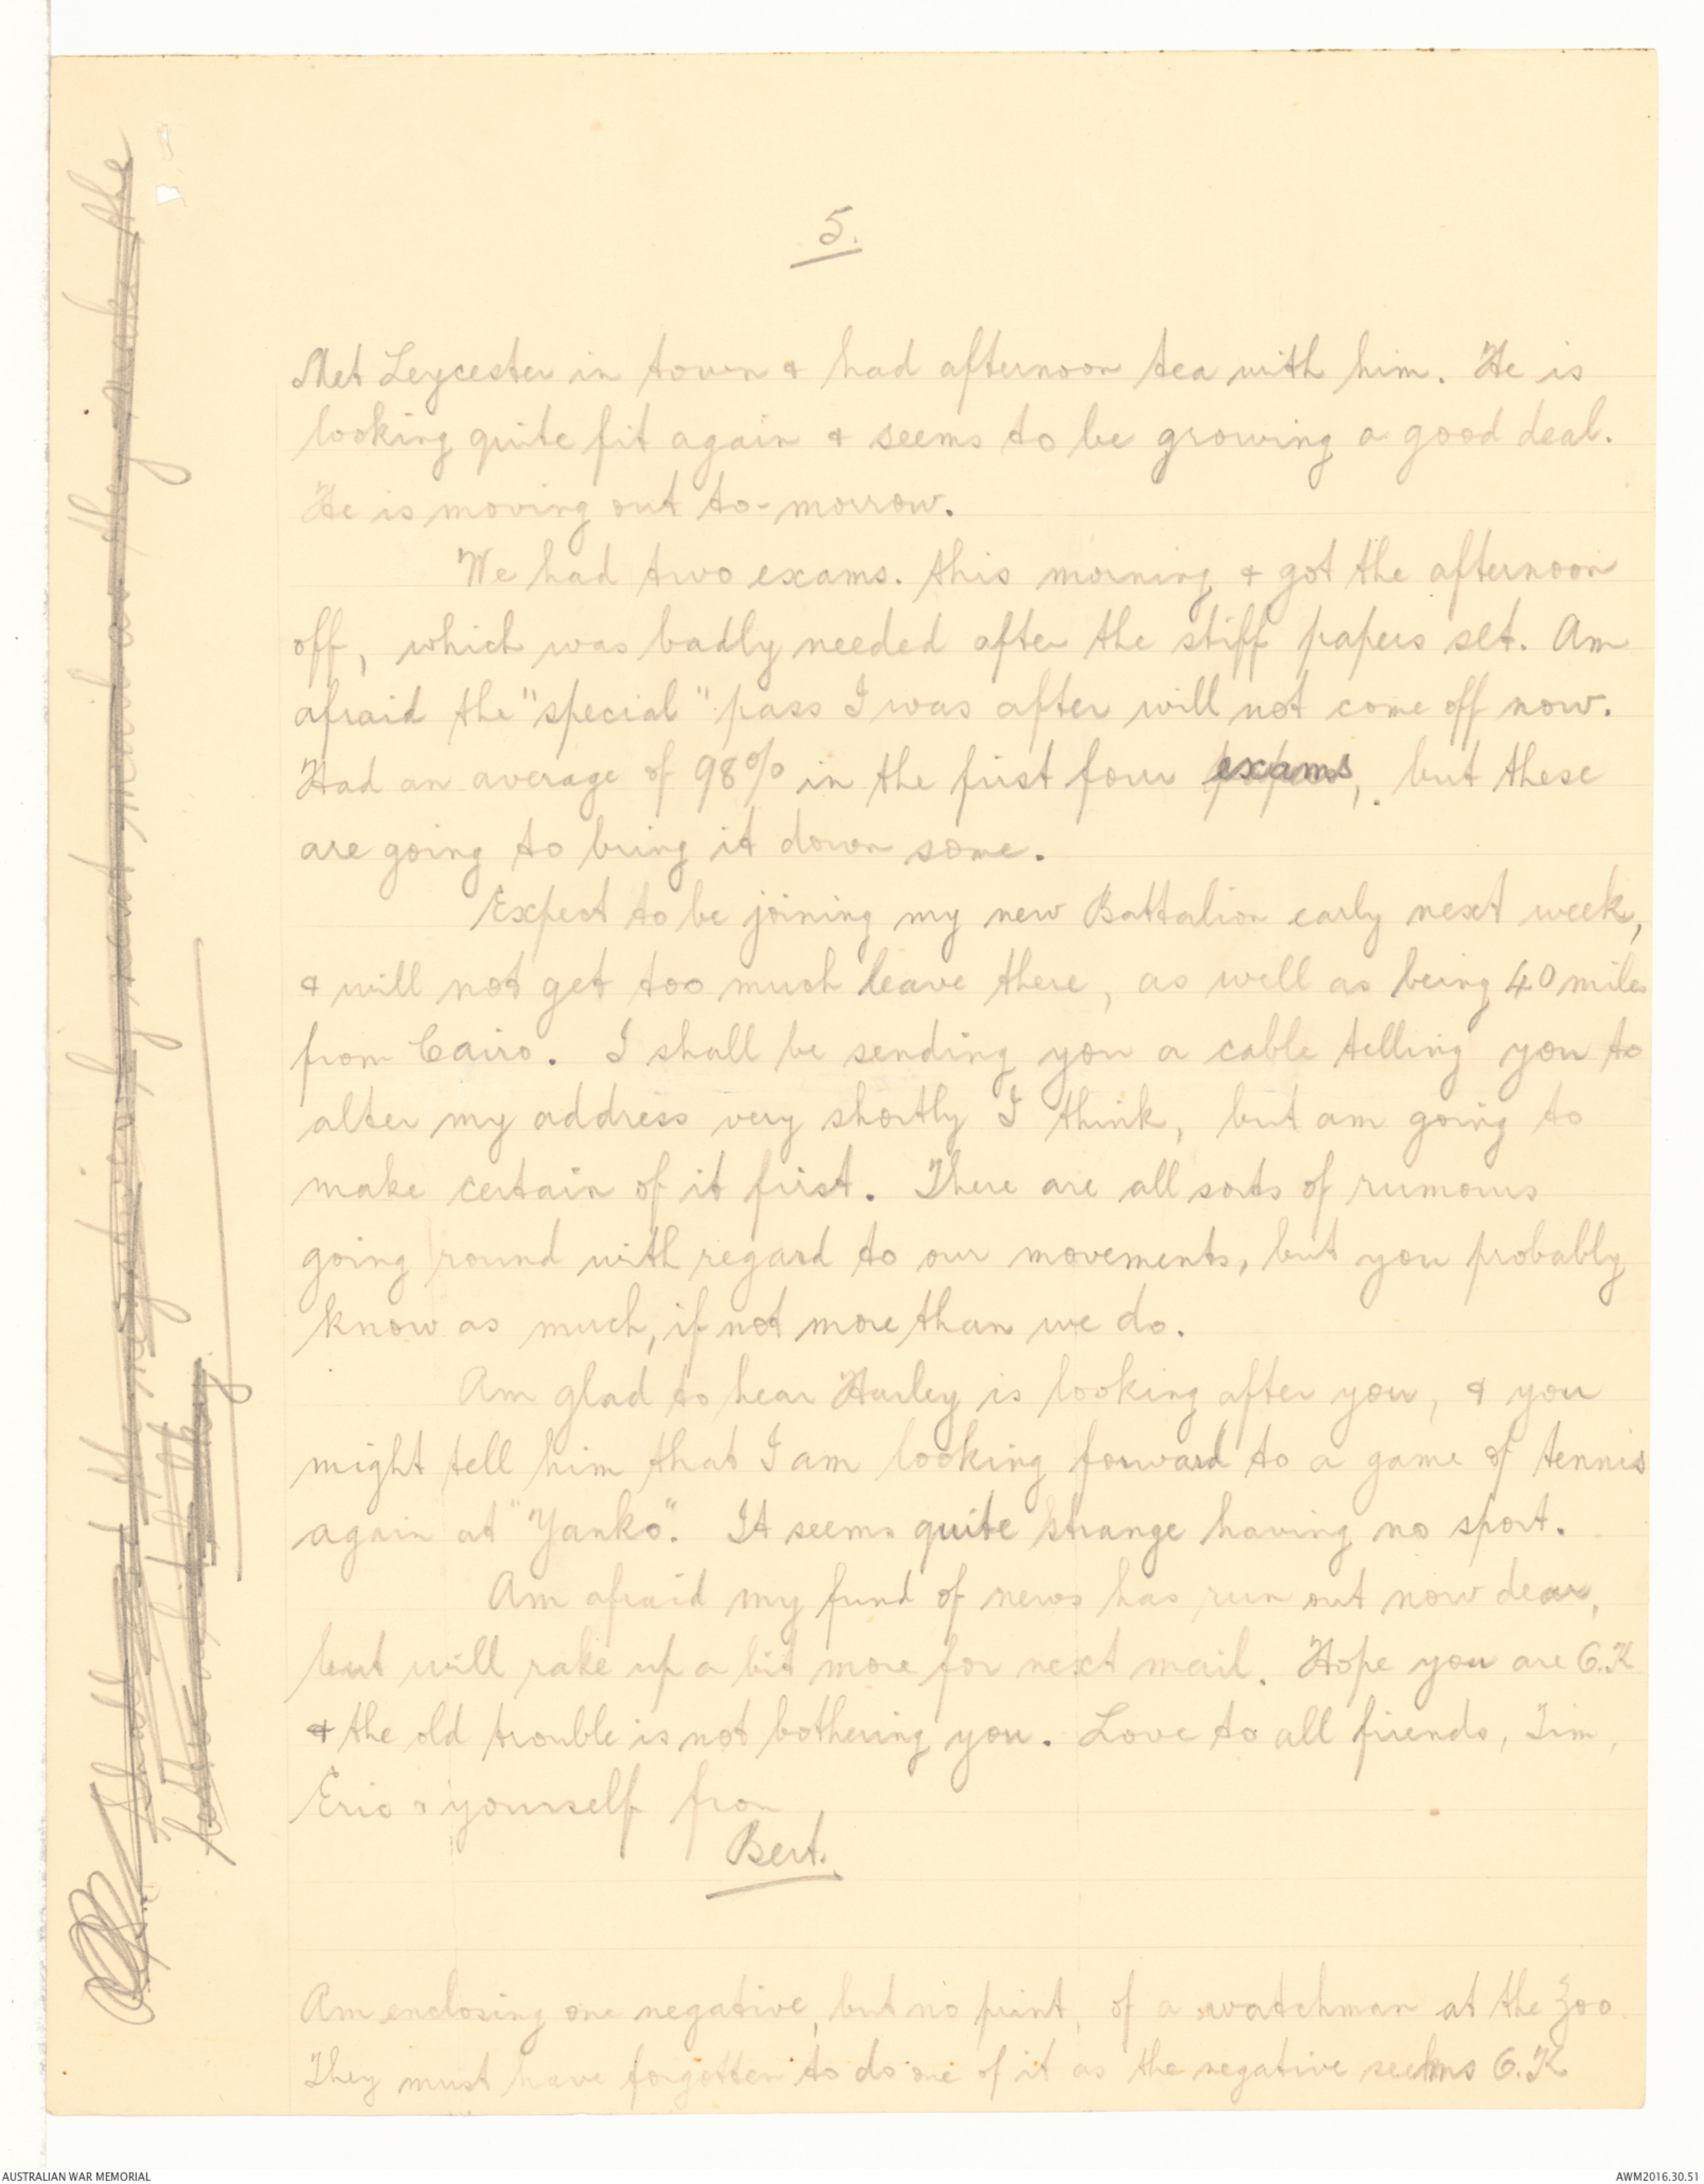 5.
Met Leycester in town & had afternoon tea with him. He is
looking quite fit again & seems to be growing a good deal.
He is moving out to-morrow.
We had two exams. this morning & got the afternoon
off, which was badly needed after the stiff papers set. Am
afraid the "special" pass I was after will not come off now.
Had an average of 98% in the first four exams, but these
are going to bring it down some.
Expect to be joining my new Battalion early next week,
& will not get too much leave there, as well as being 40 miles
from Cairo. I shall be sending you a cable telling you to
alter my address very shortly I think, but am going to
make certain of it first. There are all sorts of rumours
going round with regard to our movements, but you probably
know as much, if not more than we do.
Am glad to hear Hurley is looking after you, & you
might tell him that I am looking forward to a game of tennis
again at "Yanko". It seems quite strange having no sport.
Am afraid my fund of news has run out now dear,
but will rake up a bit more for next mail. Hope you are O.K
& the old trouble is not bothering you. Love to all friends, Jim,
Eric & yourself from
Bert.
Am enclosing one negative, but no print, of a watchman at the Zoo.
They must have forgotten to do one of it as the negative seems O.K
the negatives by next mail as they make the
AUSTRALIAN WAR MEMORIAL
AWM2016.30.51